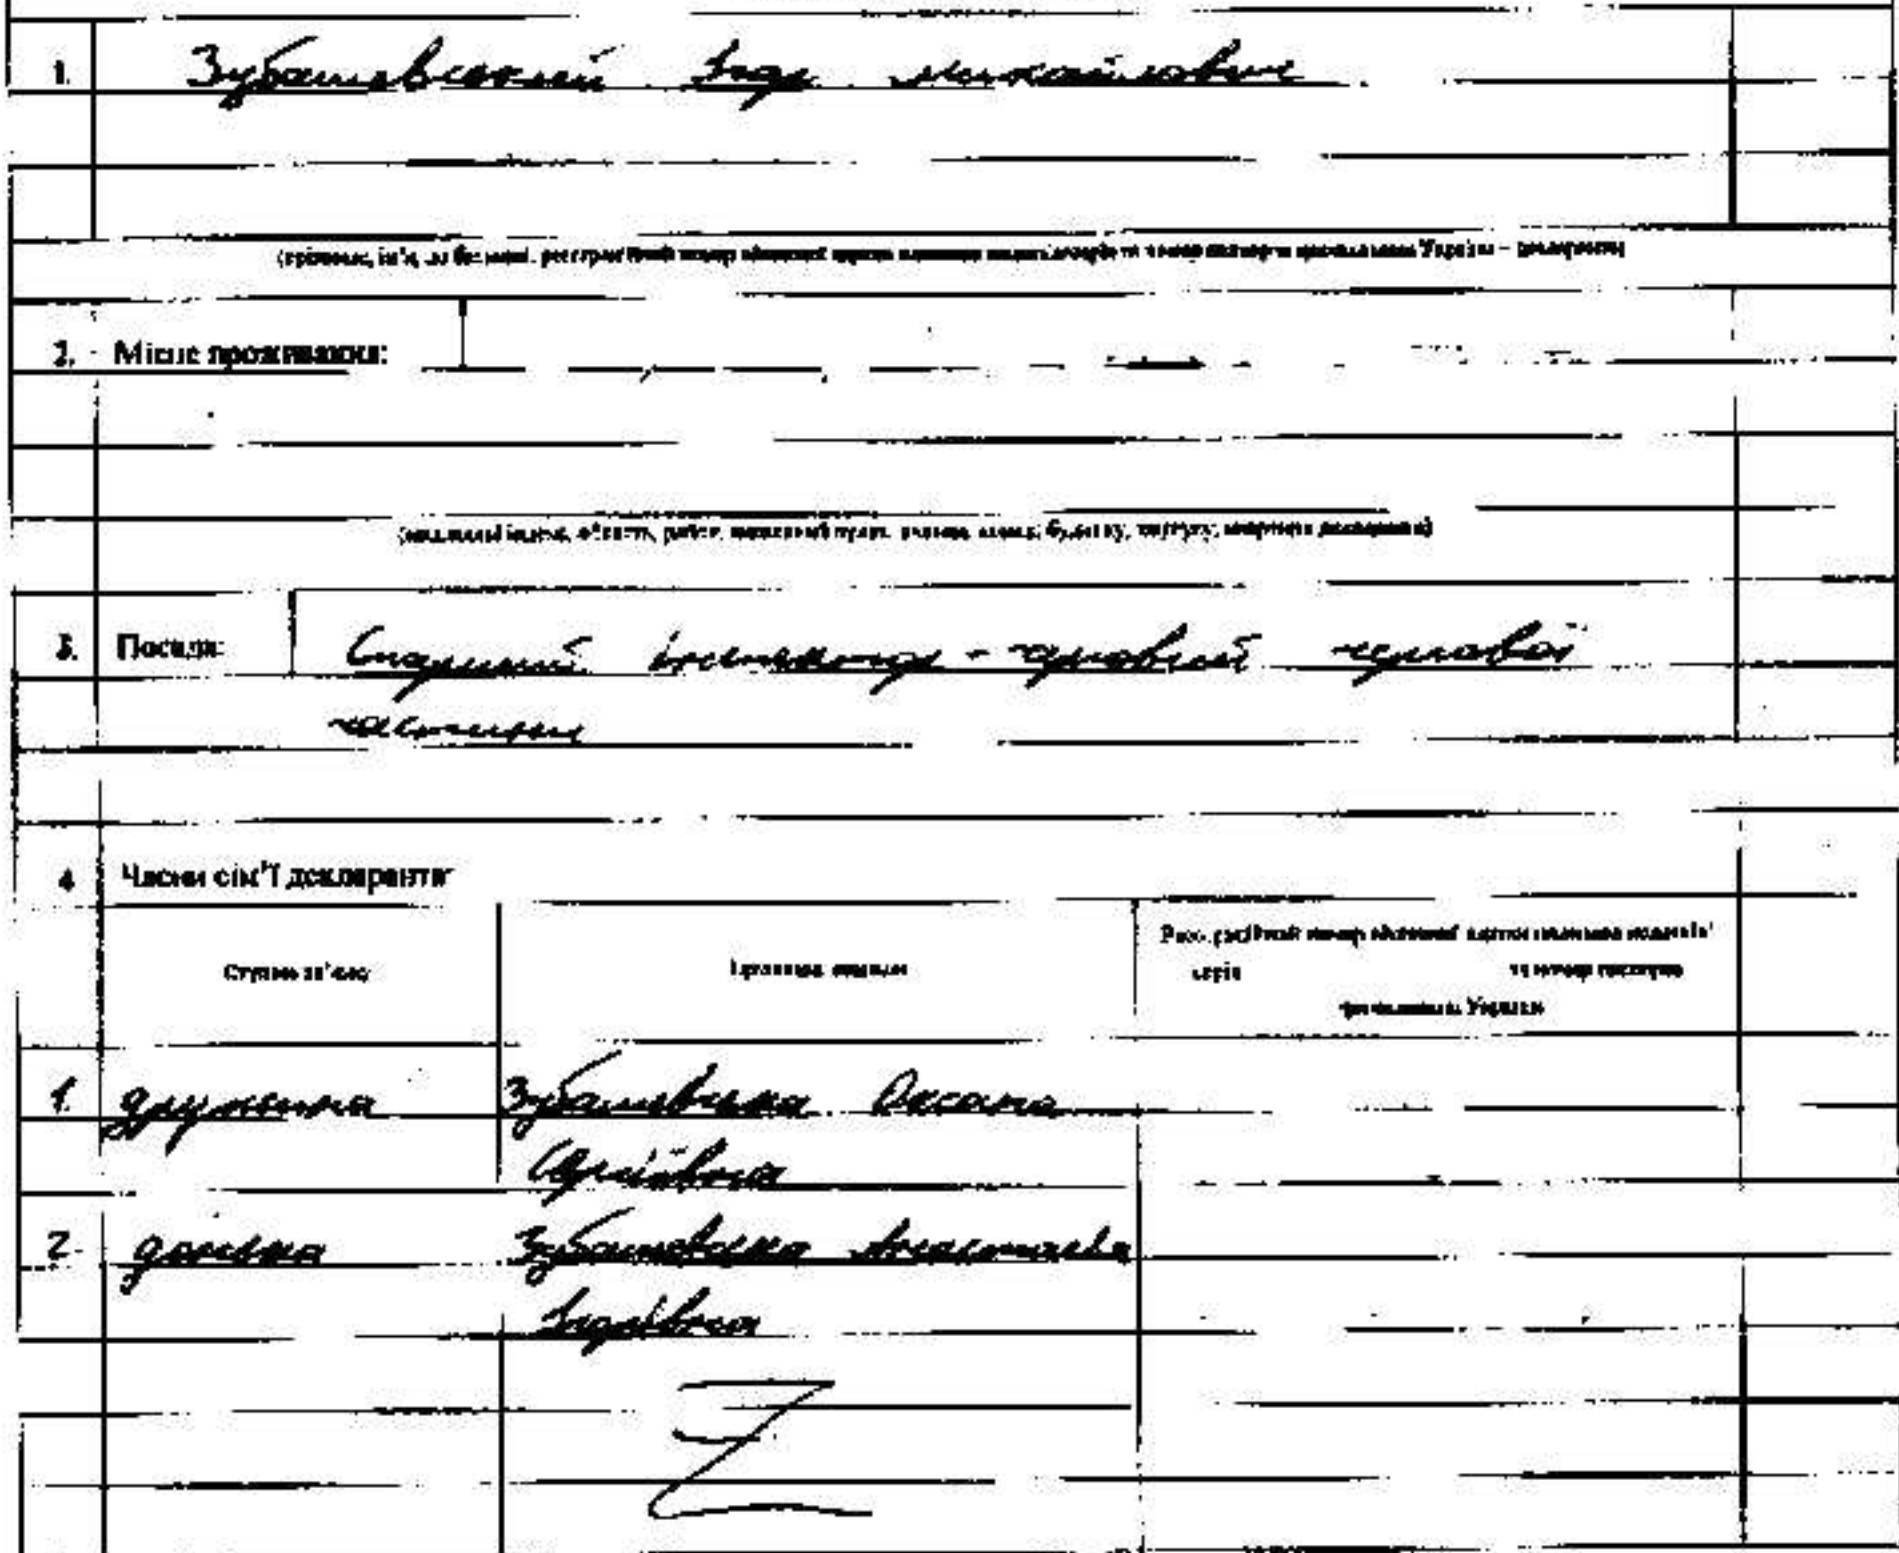 1. Зубашевський Ігор Михайлович
(прізвище, ім'я, по батькові, реєстраційний номер облікової картки платника податків/серія та номер паспорта громадянина України – декларанта)
2. Місце проживання:
(поштовий індекс, область, район, населений пункт, вулиця, номер будинку, корпусу, квартири декларанта)
3. Посада: Старший інспектор - черговий чергової
частини
4 Члени сім'ї декларанта:
Ступінь зв'язку
Прізвище, ініціали
Реєстраційний номер облікової картки платника податків/
серія та номер паспорта
громадянина України
1. дружина Зубашевська Оксана
Сергіївна
2. донька Зубашевська Анастасія
Ігорівна